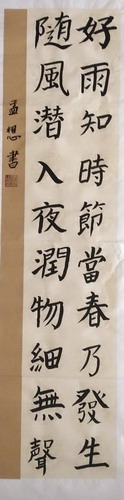 好雨知時節當春乃發生
隨風潛入夜潤物細無聲
孟想書